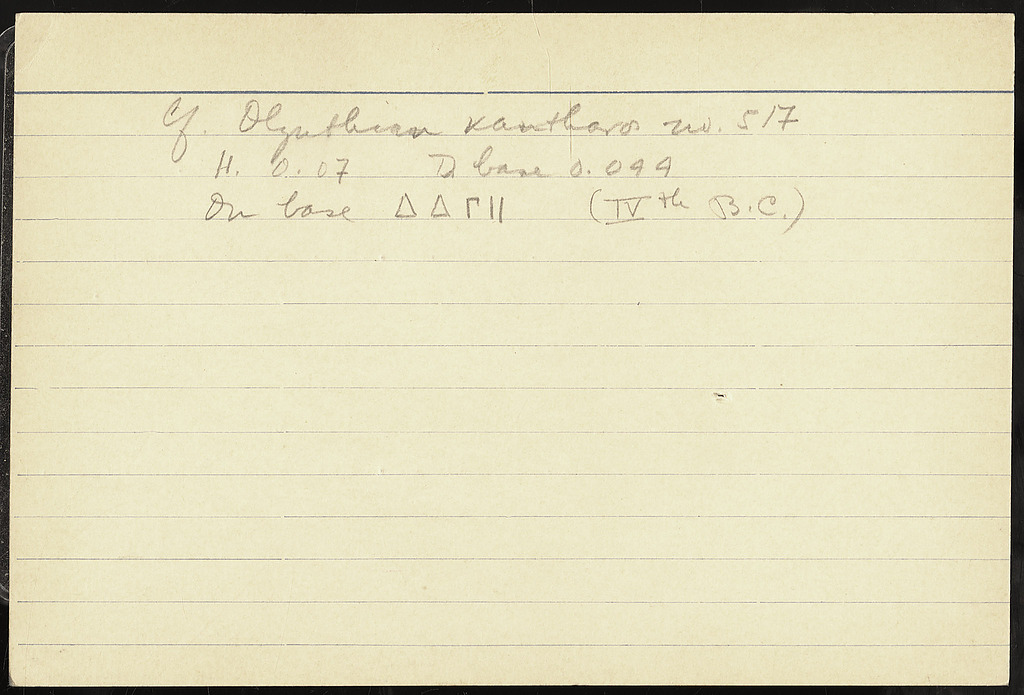 Cf. Olynthian kantharos no. 517
H. 0.07 D base 0.044
On base ΔΔΓ||  (IVth B.C.)